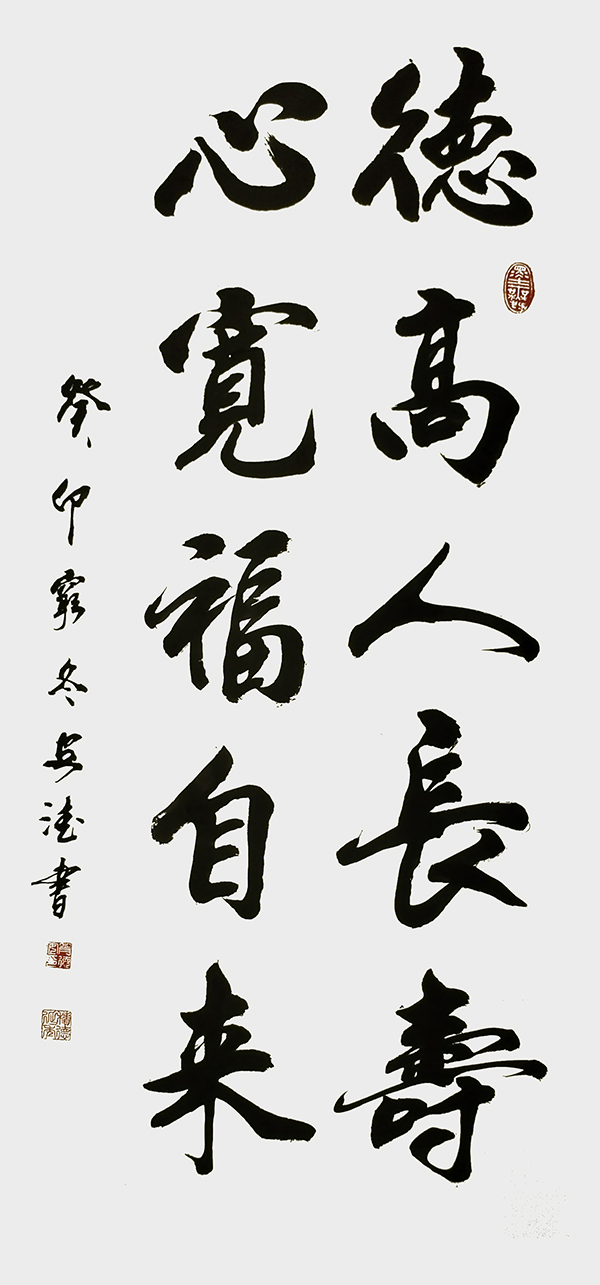 德高人長壽
心寬福自来
癸卯窮冬安德書